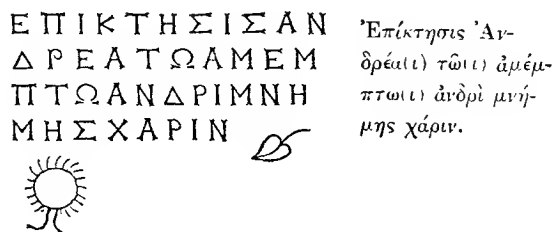 ΕΠΙΚΤΗΣΙΣΑΝ
ΔΡΕΑΤΩΑΜΕΜ
ΠΤΩΑΝΔΡΙΜΝΗ
ΜΗΣΧΑΡΙΝ
Ἐπίκτησις Ἀν-
δρέα(ι) τῶ(ι) ἀμέμ-
πτω(ι) ἀνδρὶ μνή-
μης χάριν.